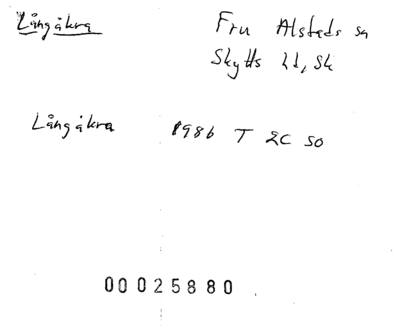 Långåkra
Fru Alsteds sn
Skytts hd, Sk
Långåkra 1986 T 2C SO
00025880